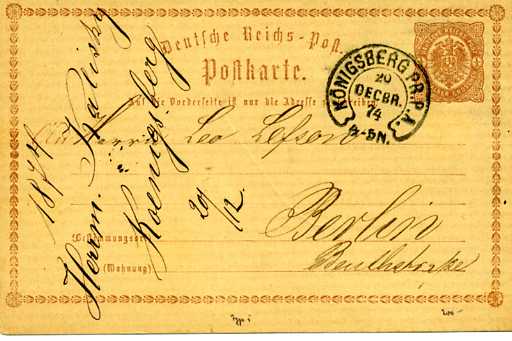 Deutsche Reichs-Post.
Postkarte.
Auf die Vorderseite ist nur die Adresse zu schreiben
KÖNIGSBERG PR. P.A.
20
DECBR.
74
4-5N.
An Herrn Leo
Berlin
Bestimmungsort
(Wohnung)
Beuthstraße
1874
Herrm. Kalisky
Koenigsberg
20/12.